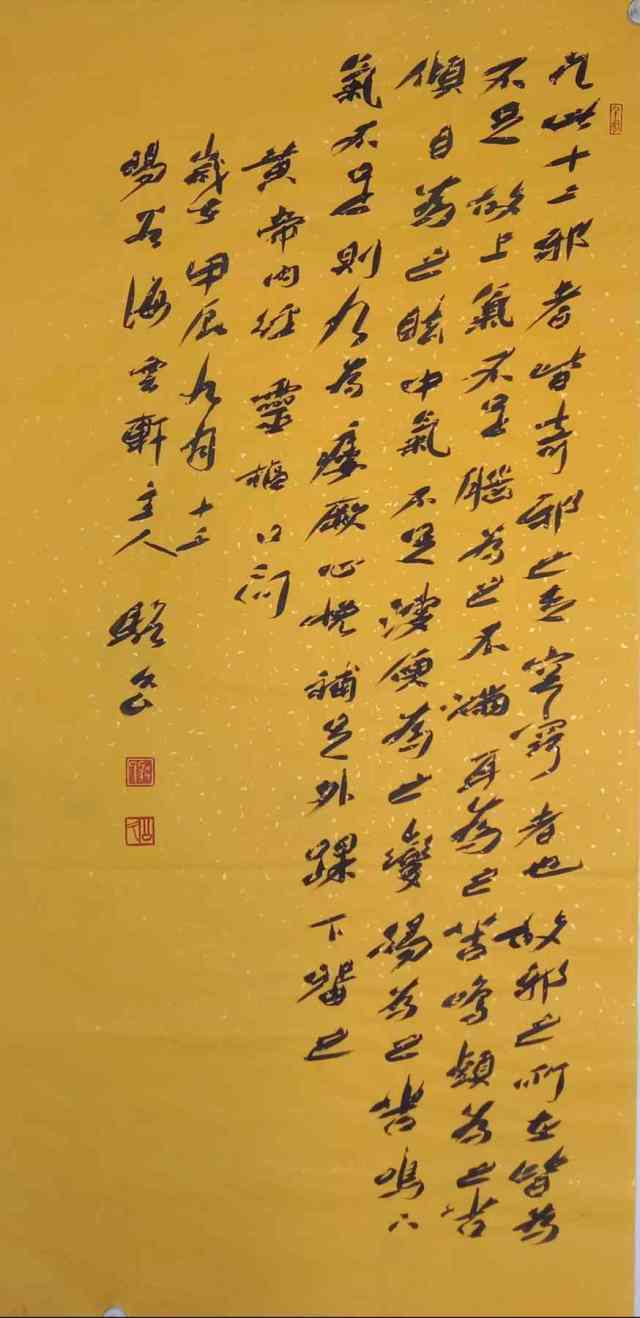 凡此十二邪者皆奇邪之走空竅者也故邪之所在皆為
不足故上氣不足腦為之不滿耳為之苦鳴頭為之苦
傾目為之眩中氣不足溲便為之變腸為之苦鳴下
氣不足則乃為痿厥心悗補足外踝下留之
黄帝内經靈樞口問
歲在甲辰九月十三
暘谷海雲軒主人